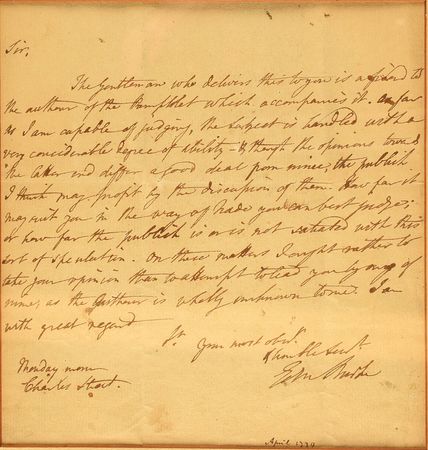 Sir,
The Gentleman who delivers this to you is a friend to
the author of the Pamphlet which accompanies it. as far
as I am capable of judging, the subject is handled with a
very considerable degree of ability - & though the opinions toward
the latter end differ a good deal from mine, the publick
I think may profit by the discussion of them. How far it
may suit you in the way of trade you can best judge;
or how far the publick is or is not satiated with this
sort of speculation. On these matters I ought rather to
take your opinion than to attempt to lead you by any of
mine; as the Author is wholly unknown to me. I am
with great regard
Sr. your most obt.
& humble Servt.
Edm Burke
Monday morn
Charles Street.
April 1779